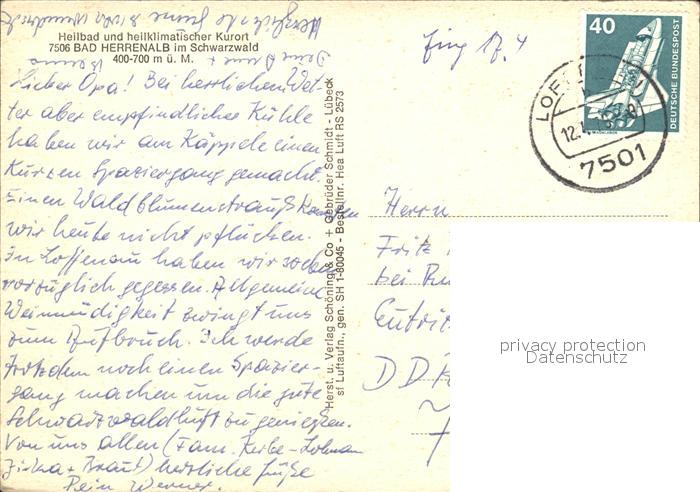 Heilbad und heilklimatischer Kurort
7506 BAD HERRENALB im Schwarzwald
400-700 m ü. M.
Lieber Opa! Bei herrlichem Wet-
ter aber empfindlicher Kühle
haben wir am Käppele einen
Kurzen Spaziergang gemacht.
Einen Waldblumenstrauß konnten
wir heute nicht pflücken.
In Loffenau haben wir soeben
vorzüglich gegessen. Allgemeine
Weinmüdigkeit zwingt uns
zum Aufbruch. Ich werde
trotzdem noch einen Spazier-
gang machen um die gute
Schwarzwaldluft zu genießen.
Von uns allen (Fam.
+ Braut) herzliche Grüße
Dein Werner.
Herzlichste Grüße
Herst. u. Verlag Schöning & Co + Gebrüder Schmidt - Lübeck
sf Luftaufn., gen. SH 1-80045 - Bestellnr. Hea Luft RS 2573
17.4
40
DEUTSCHE BUNDESPOST
7501
Herrn
Fritz
bei
DDR
7
privacy protection
Datenschutz